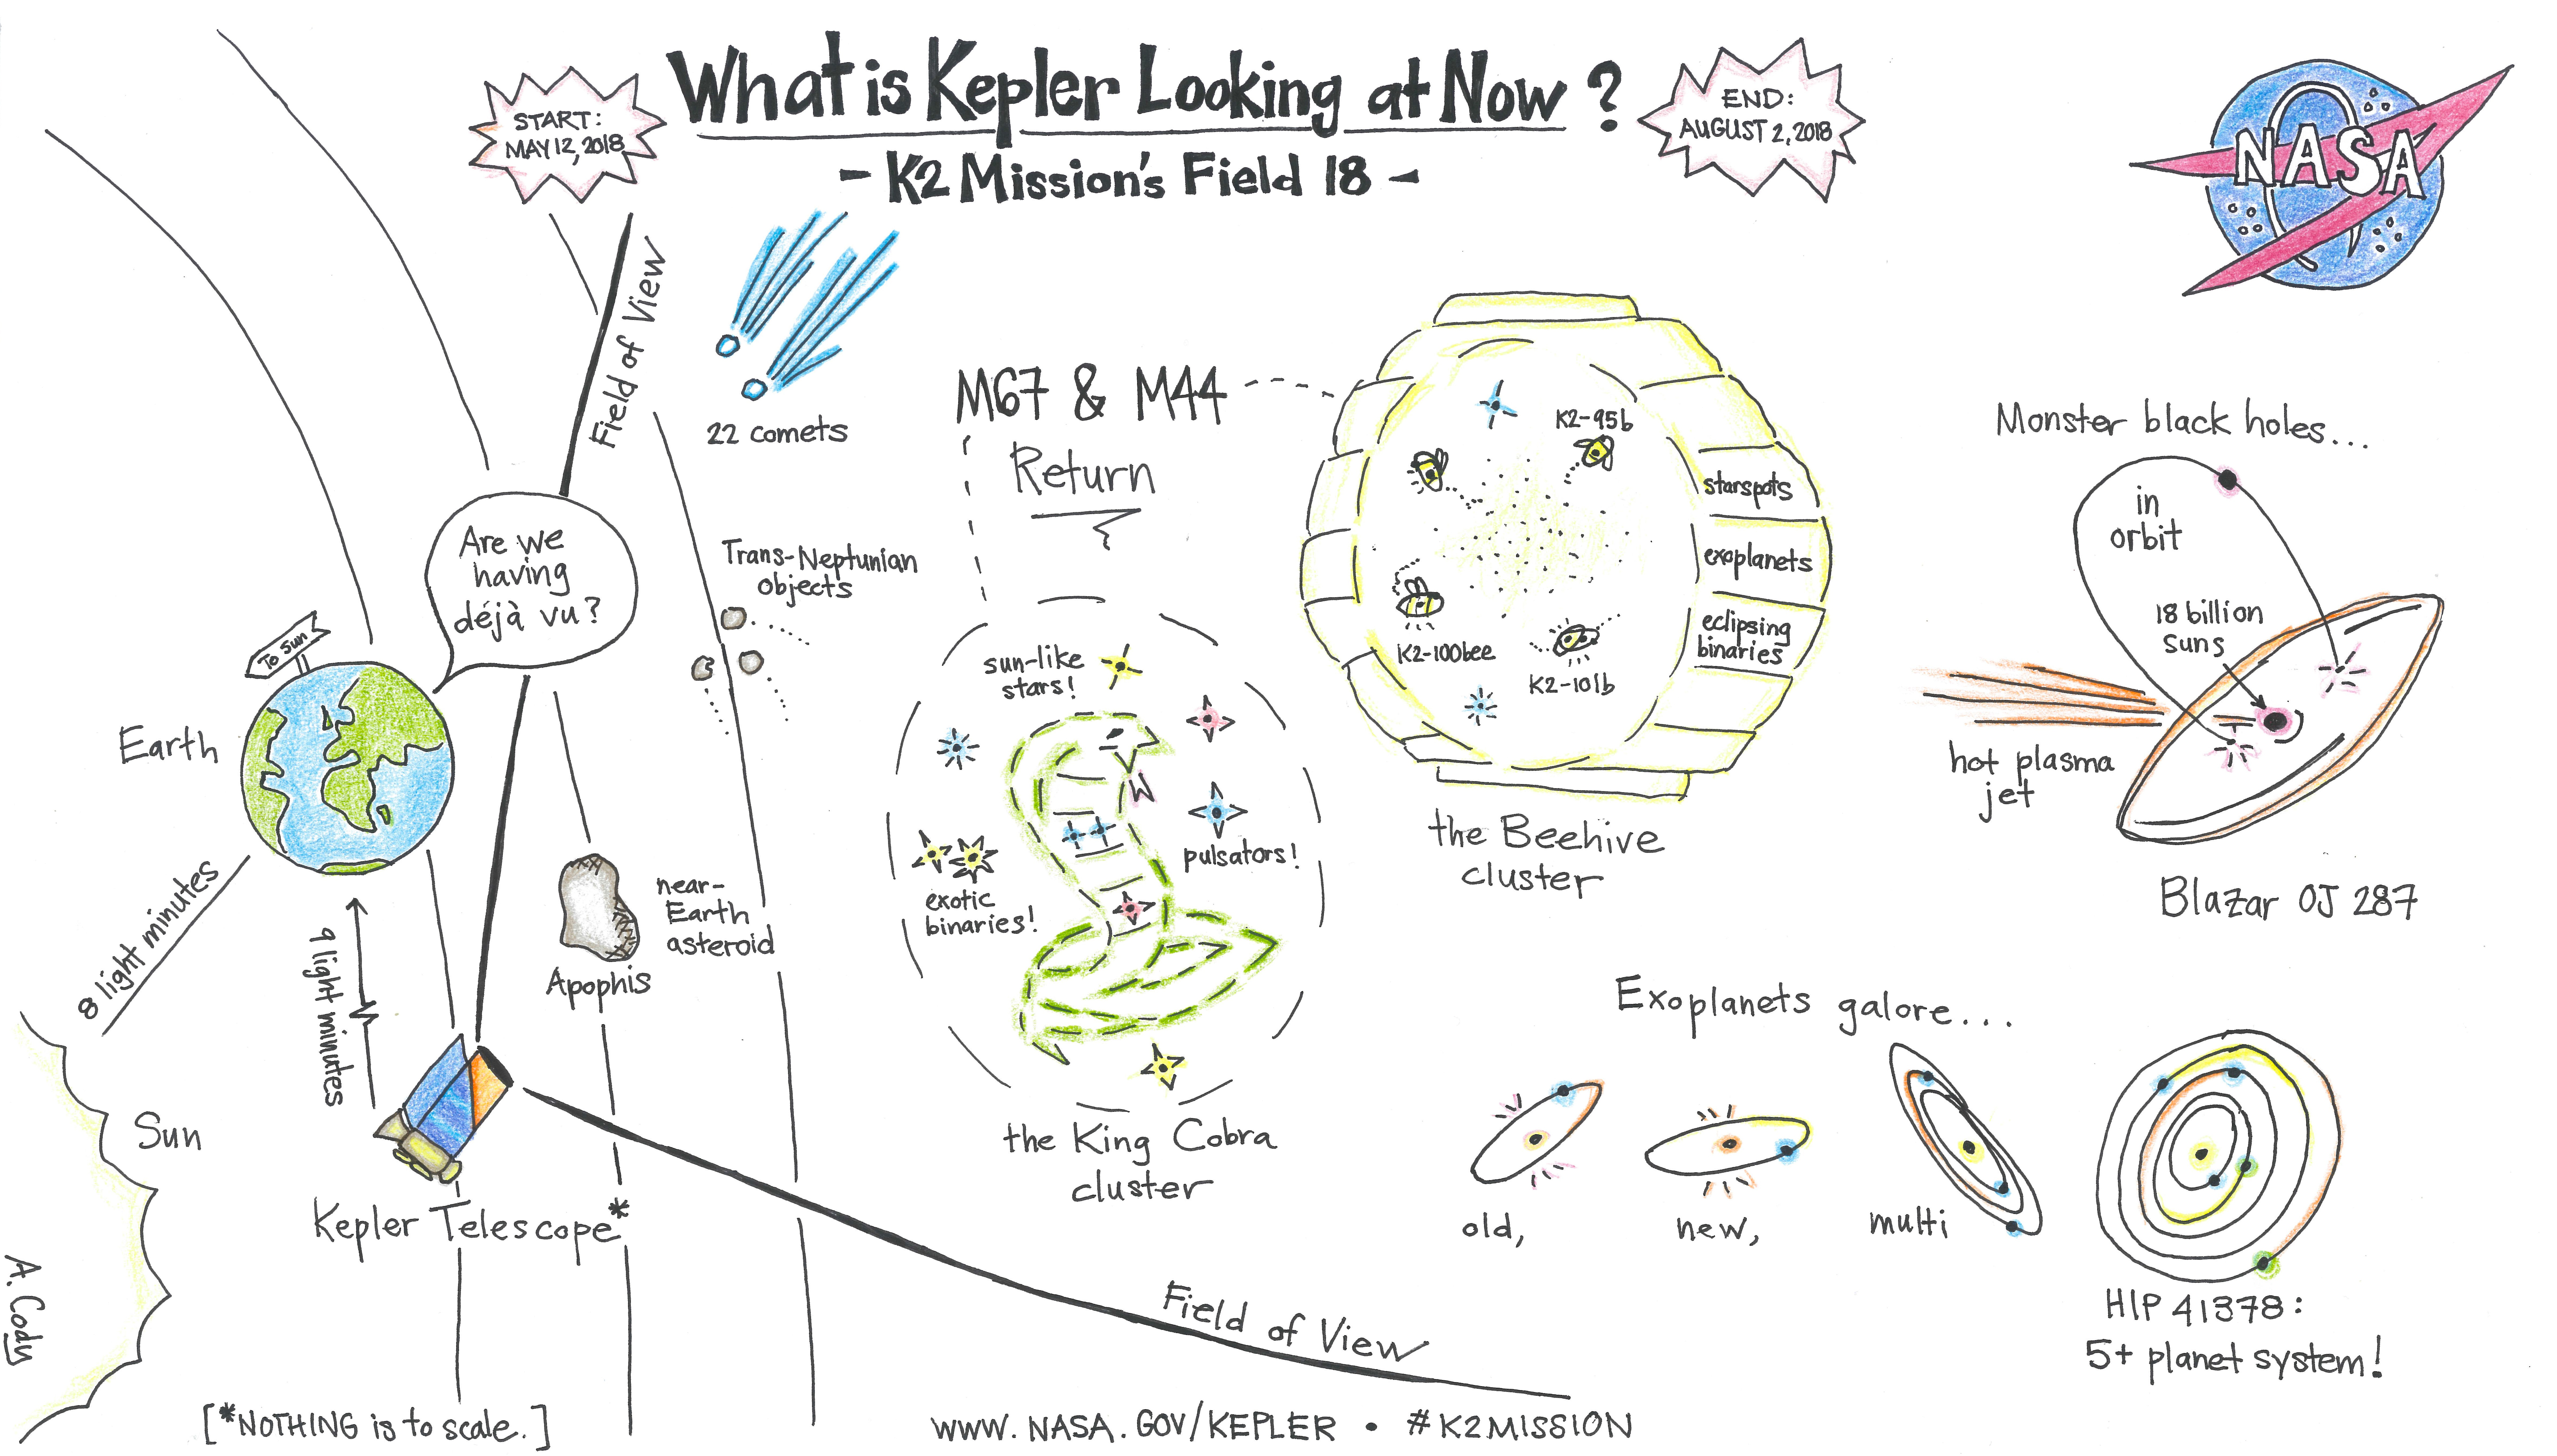 What is Kepler Looking at Now?
- K2 Mission's Field 18 -
START:
MAY 12, 2018
END:
AUGUST 2, 2018
NASA
Field of View
22 comets
Are we
having
déjà vu?
Trans-Neptunian
objects
To Sun
Earth
8 light minutes
9 light minutes
Sun
near-
Earth
asteroid
Apophis
Kepler Telescope*
A. Cody
[*NOTHING is to scale.]
M67 & M44
Return
sun-like
stars!
pulsators!
exotic
binaries!
the King Cobra
cluster
K2-95b
K2-100bee
K2-101b
starspots
exoplanets
eclipsing
binaries
the Beehive
cluster
Monster black holes...
in
orbit
18 billion
suns
hot plasma
jet
Blazar OJ 287
Exoplanets galore...
old,
new,
multi
HIP 41378:
5+ planet system!
Field of View
WWW.NASA.GOV/KEPLER • #K2MISSION